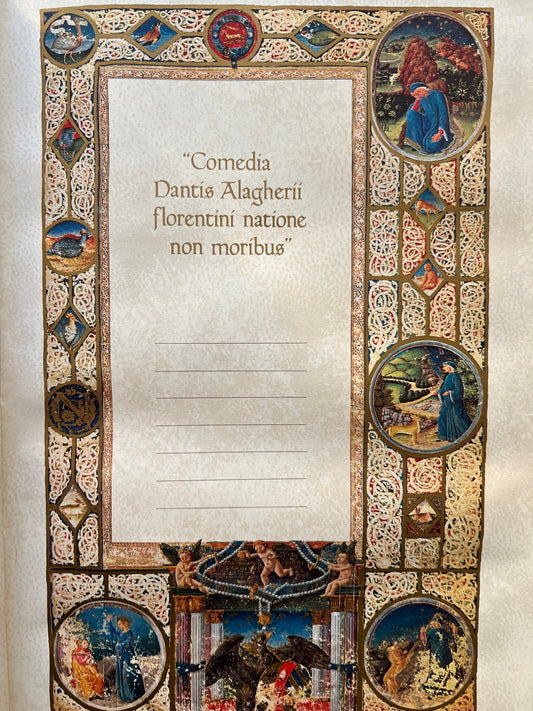 “Comedia
Dantis Alagherii
florentini natione
non moribus”